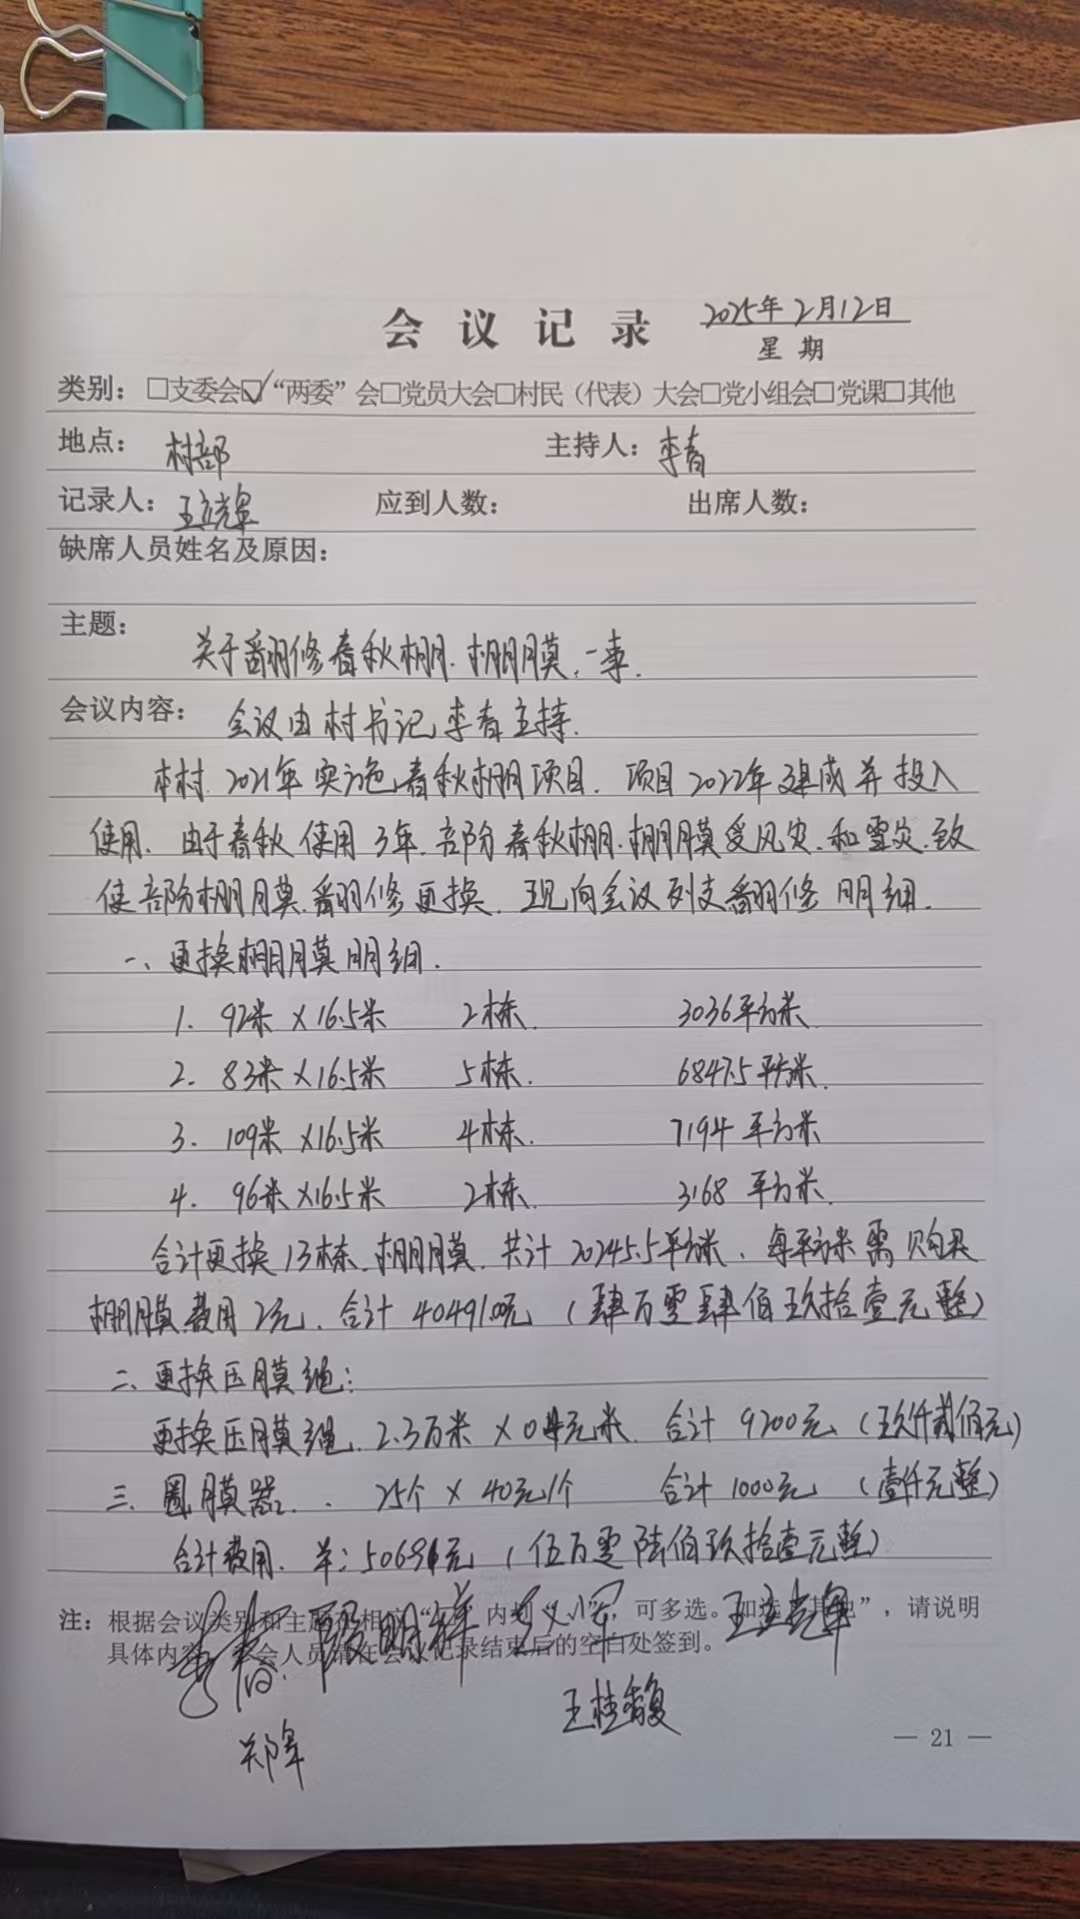 会议记录 2025年2月12日
星期
类别：□支委会☑“两委”会□党员大会□村民（代表）大会□党小组会□党课□其他
地点： 村部 主持人： 李春
记录人： 王立辉 应到人数： 出席人数：
缺席人员姓名及原因：
主题：
关于翻修春秋棚.棚膜.一事.
会议内容： 会议由村书记李春主持.
本村.2021年实施春秋棚项目.项目2022年建成并投入
使用.由于春秋使用3年.部分春秋棚.棚膜受风灾.和雪灾.致
使部份棚膜.翻修更换.现向会议列支翻修明细.
一、更换棚膜明细.
1. 92米×16.5米 2栋. 3036平方米.
2. 83米×16.5米 5栋. 6847.5平方米.
3. 109米×16.5米 4栋. 7194平方米
4. 96米×16.5米 2栋. 3168平方米.
合计更换13栋.棚膜.共计20245.5平方米.每平方米需购买
棚膜费用2元.合计40491.00元（肆万零肆佰玖拾壹元整）
二、更换压膜绳：
更换压膜绳.2.3万米×0.4元米.合计9200元（玖仟贰佰元）
三、圈膜器.. 25个×40元/个 合计1000元（壹仟元整）
合计费用.羊:50691元（伍万零陆佰玖拾壹元整）
注：根据会议类别和主题在相应“□”内划“√”，可多选。如选“其他”，请说明
具体内容。 会人员请在会议记录结束后的空白处签到。
李春 明祥 王立辉
王桂馥
郑军
— 21 —